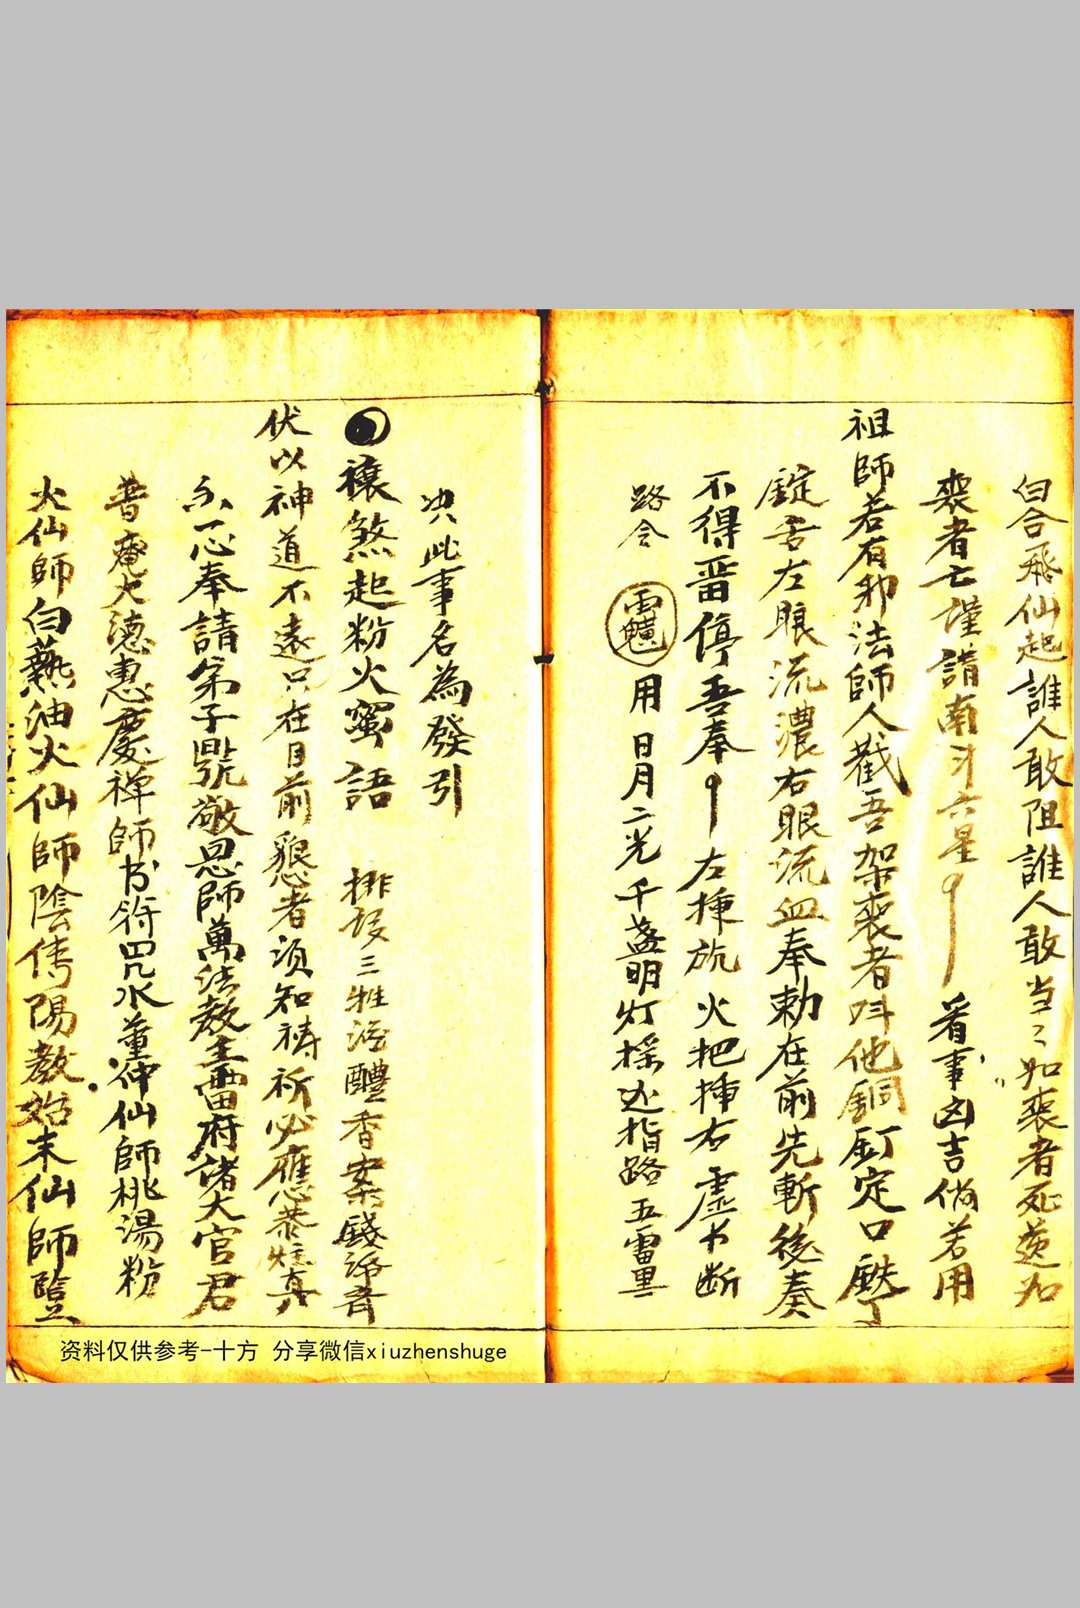 白合飛仙起誰人敢阻誰人敢当〻如喪者死
喪者亡謹請南斗六星 着事凶吉倘若用
祖師若有邪法師人截吾架喪者 他銅釘定口
錠舌左眼流濃右眼流血奉勅在前先斬後奏
不得畱停吾奉 左揷旂火把揷右虚书断
路令 用日月二光千盞明灯 指路五雷
决此事名為發引
禳煞起粉火蜜語 排设三牲酒醴香案錢
伏以神道不遠只在目前懇者須知禱祈必應恭炷真
一心奉請弟子號敬恩師萬法教主雷府諸大官君
普庵大德惠慶禅師书符咒水董仲仙師桃湯粉
火仙師白熱油火仙師陰傳陽教始末仙師
资料仅供参考-十方 分享微信xiuzhenshuge